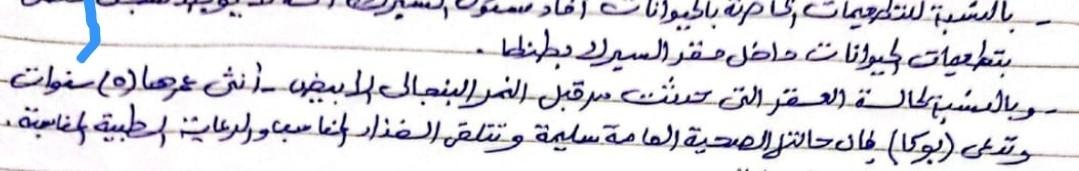 - بالنسبة للتطعيمات الخاصة بالحيوانات أفاد مسئول السيرك
بتطعيمات الحيوانات داخل مقر السيرك بطنطا .
- وبالنسبة لحالة العقر التى حدثت من قبل النمر البنجالى الأبيض - أنثى عمرها (٥) سنوات
وتدعى (بوكا) فإن حالتها الصحية العامة سليمة وتتلقى الغذاء المناسب والرعاية الطبية المناسبة .